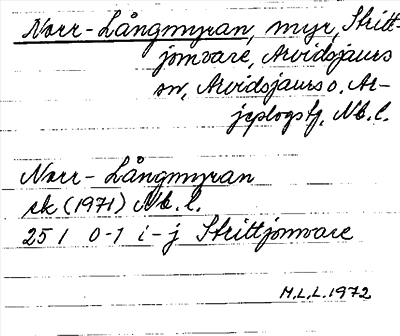 Norr-Långmyran, myr, Stritt-
jomvare, Arvidsjaurs
sn, Arvidsjaurs o. Ar-
jeplogs tg, Nb. l.
Norr-Långmyran
sk (1971) Nb. l.
25 I 0-1 i-j Strittjomvare
M.L.L. 1972